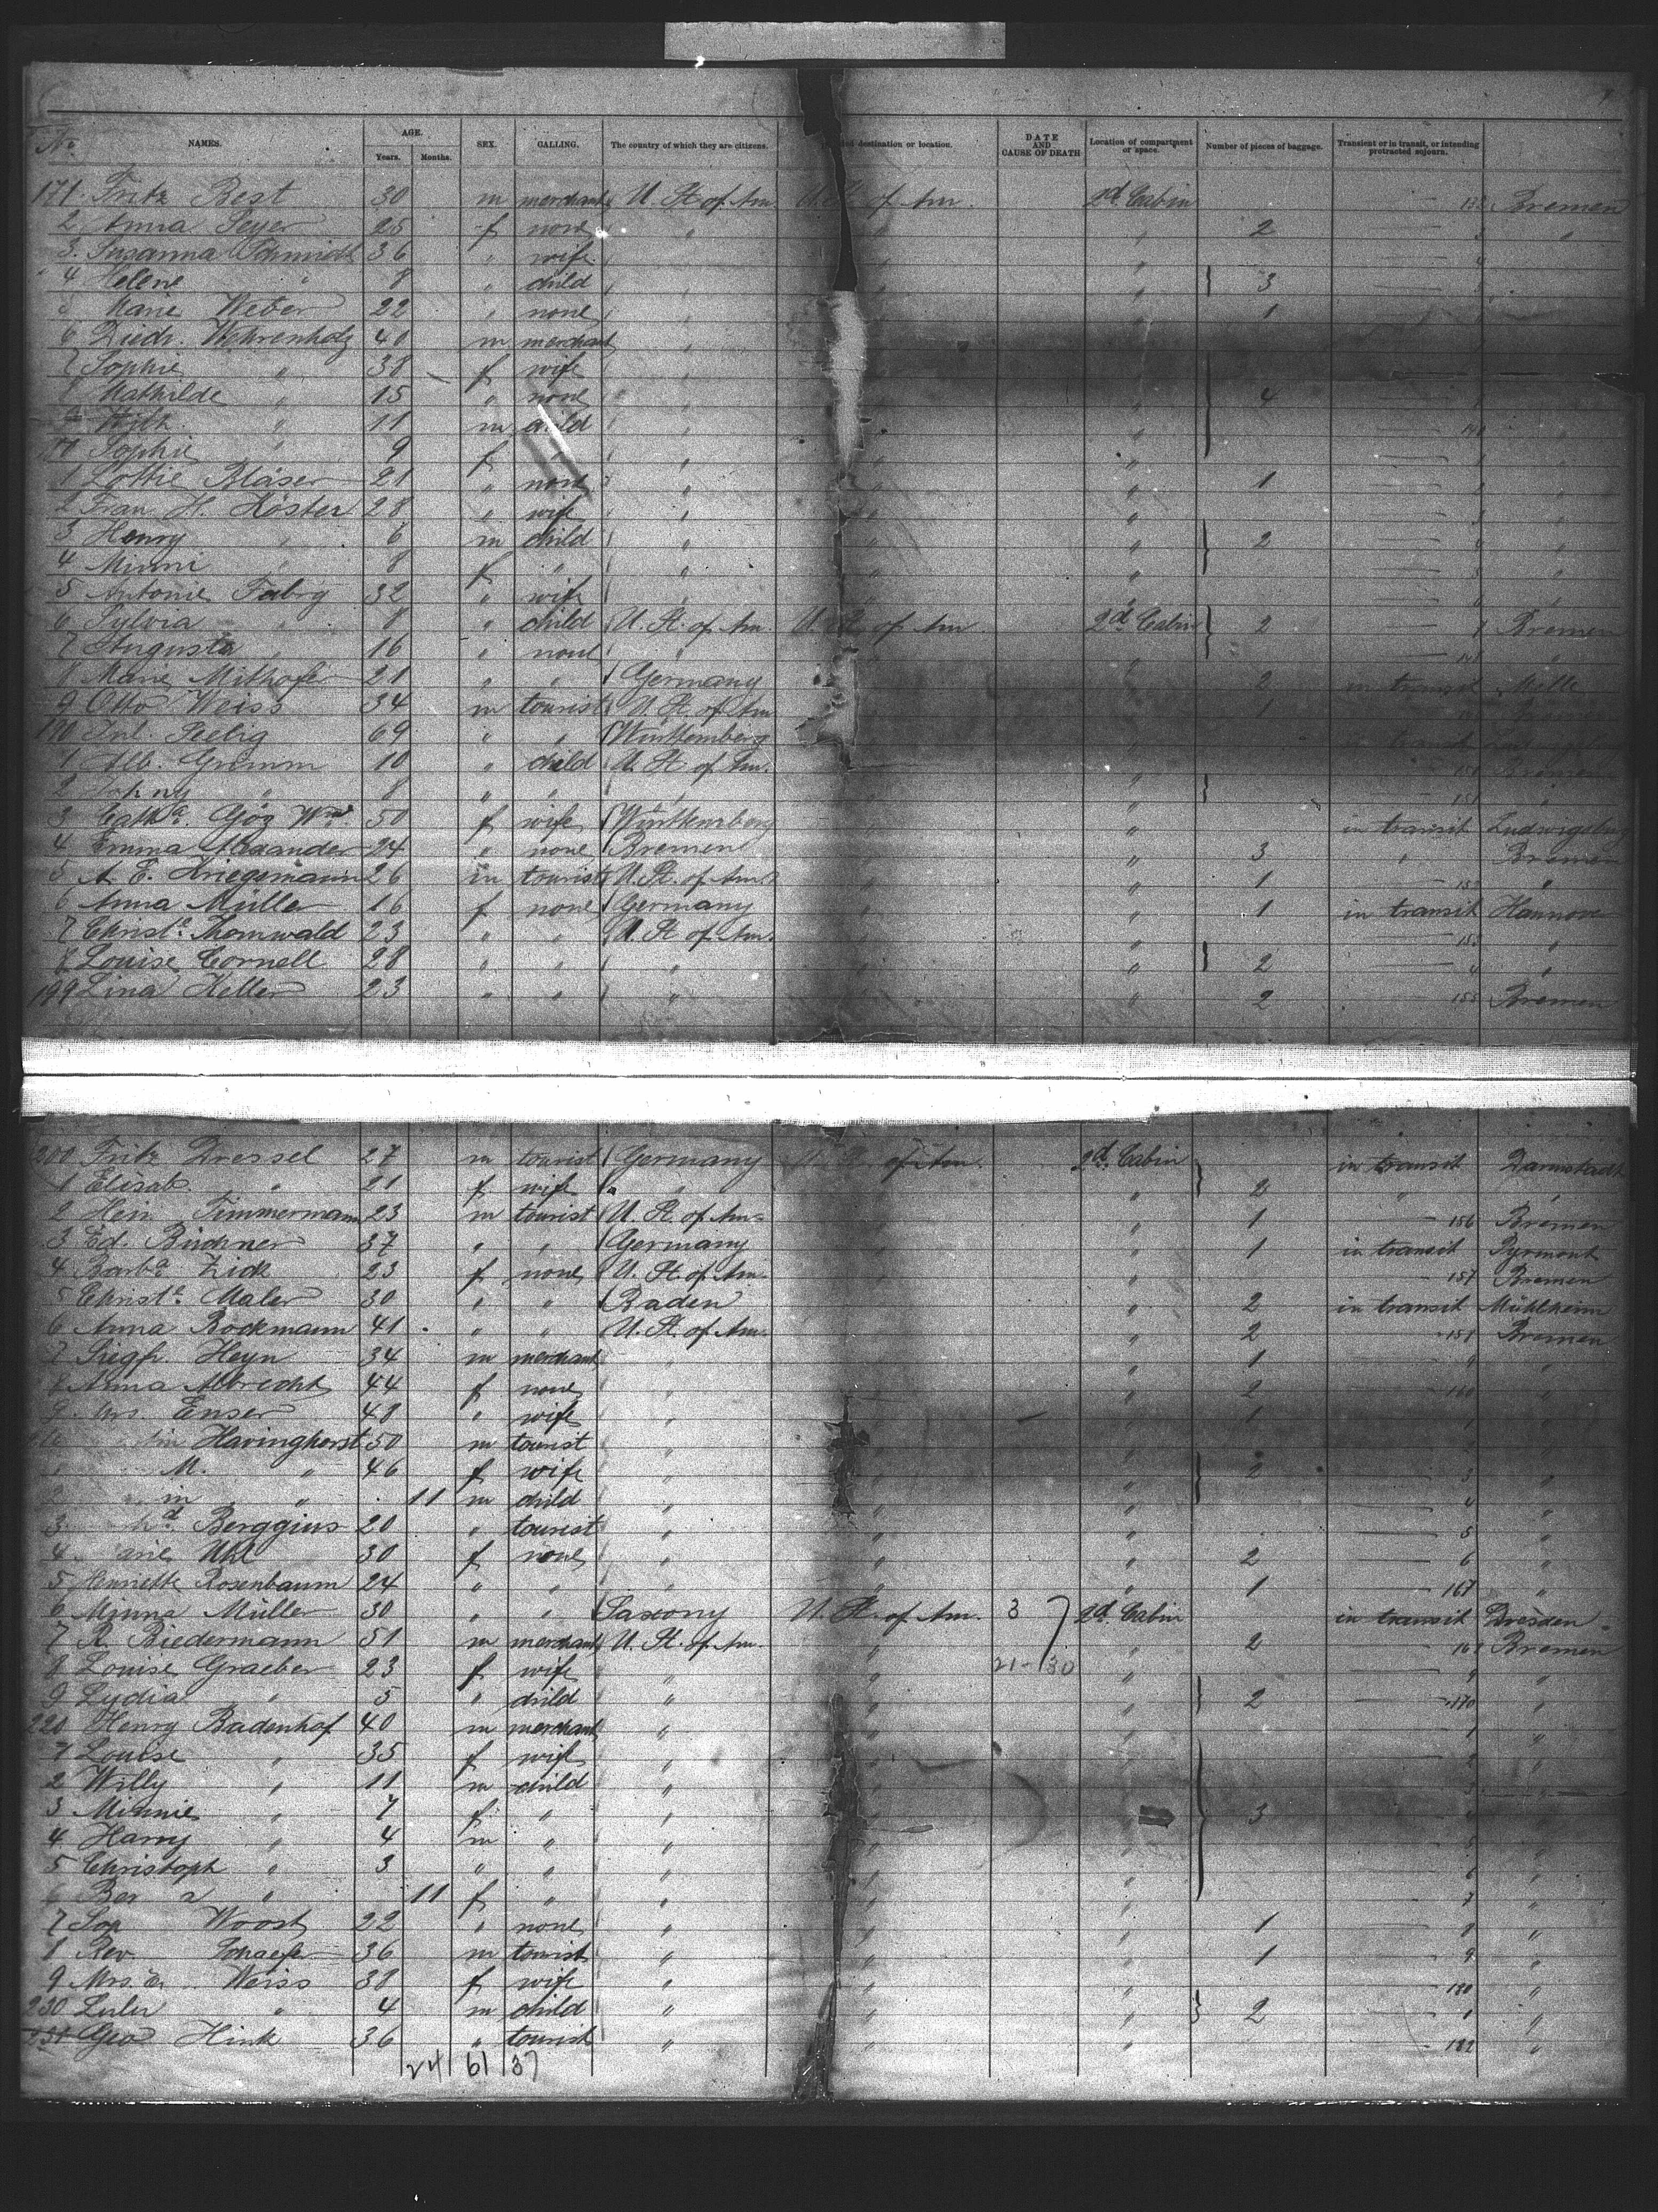 No. NAMES. AGE. Years. Months. SEX. CALLING. The country of which they are citizens. destination or location. DATE AND CAUSE OF DEATH Location of compartment or space. Number of pieces of baggage. Transient or in transit, or intending protracted sojourn.
171 Fritz Best 30 m merchant U. St. of Am. U. St. of Am. 2d Cabin Bremen
2 Anna Feyer 25 f none " " " 2 "
3. Susanna Schmidt 36 " wife " " "
4 Helene " 8 " child " " " 3
Marie Weber 22 " none " " " 1
6 Diedr. Wehrenholz 40 m merchant "
7 Sophie " 38 f wife "
Mathilde " 15 " none " " " 4
Wilh. " 11 m child " " " 140
Sophie " 9 f " " " " 1
1 Lottie Bläser 21 " none " " " 1 2 "
2 Frau H. Köster 28 " wife " " " 3 "
3 Henry " 6 m child " " " 2 4 "
4 Minni " 8 f " " " " 5 "
5 Antonie Fabry 32 " wife " " " 6 "
6 Sylvia " 8 " child U. St. of Am. U. St. of Am. 2d Cabin 2 Bremen
7 Augusta " 16 " none " " " 148 "
8 Marie Mithofer 21 " " Germany " 2 in transit Melle
9 Otto Weiss 34 m tourist U. St. of Am 1
190 Jul. Seelig 69 " " Württemberg in transit
1 Alb. Grimm 10 " child U. St. of Am. " 150 Bremen
2 Johny " 8 " " " " 151 "
3 Catha. Göz Wwe 50 f wife Württemberg " in transit Ludwigsburg
4 Emma Alexander 24 " none Bremen " 3 " Bremen
5 A. E. Kriegsmann 26 m tourist U. St. of Am. " " 1 152 "
6 Anna Müller 16 f none Germany " " 1 in transit Hannover
7 Christe. Thomwald 23 " " U. St. of Am. " " 153 "
8 Louise Cornell 28 " " " " " 2 4 "
199 Lina Keller 23 " " " " " 2 155 Bremen
200 Fritz Dressel 27 m tourist Germany of Am. 2d Cabin in transit Darmstadt
1 Elisab. " 21 f wife " " " 2 " "
2 Hen. Timmermann 23 m tourist U. St. of Am. " " 1 156 Bremen
3 Ed. Büchner 37 " " Germany " " 1 in transit Pyrmont
4 Barba. Zick 23 f none U. St. of Am. " " 157 Bremen
5 Christe. Maler 30 " " Baden " " 2 in transit Mühlheim
6 Anna Bockmann 41 " " U. St. of Am. " " 2 158 Bremen
7 Siegfr. Heyn 34 m merchant " " " 1 9 "
8 Anna Albrecht 44 f none " " " 2 160 "
9 Mrs. Enser 48 " wife " " " 1 1 "
Havinghorst 50 m tourist " " 2 "
M. " 46 f wife " " 2 3 "
2 " 11 m child " " " 4 "
3 Berggius 20 " tourist " " " 5 "
4 arie Uhl 30 f none " " " 2 6 "
5 Henrette Rosenbaum 24 " " " " " 1 167 "
6 Minna Müller 30 " " Saxony U. St. of Am. 3 2d Cabin in transit Dresden
7 R. Biedermann 51 m merchant U. St. of Am. " " 2 168 Bremen
8 Louise Graeber 23 f wife " " 21-130 " 9 "
9 Lydia " 5 " child " " " 2 170 "
220 Henry Badenhof 40 m merchant " " " 1 "
1 Louise " 35 f wife " " " 2 "
2 Willy " 11 m child " " " 3 "
3 Minnie " 7 f " " " 3 4 "
4 Harry " 4 m " " " " 5 "
5 Christoph " 3 " " " " " 6 "
6 Ber a " 11 f " " " " 7 "
7 Sop Woost 22 " none " " " 1 8 "
8 Rev. Schaefer 36 m tourist " " " 1 9 "
9 Mrs. Weiss 38 f wife " " " 180 "
230 Lulu " 4 m child " " " 2 1 "
231 Geo Hink 36 " tourist " " " 182 "
24 61 37